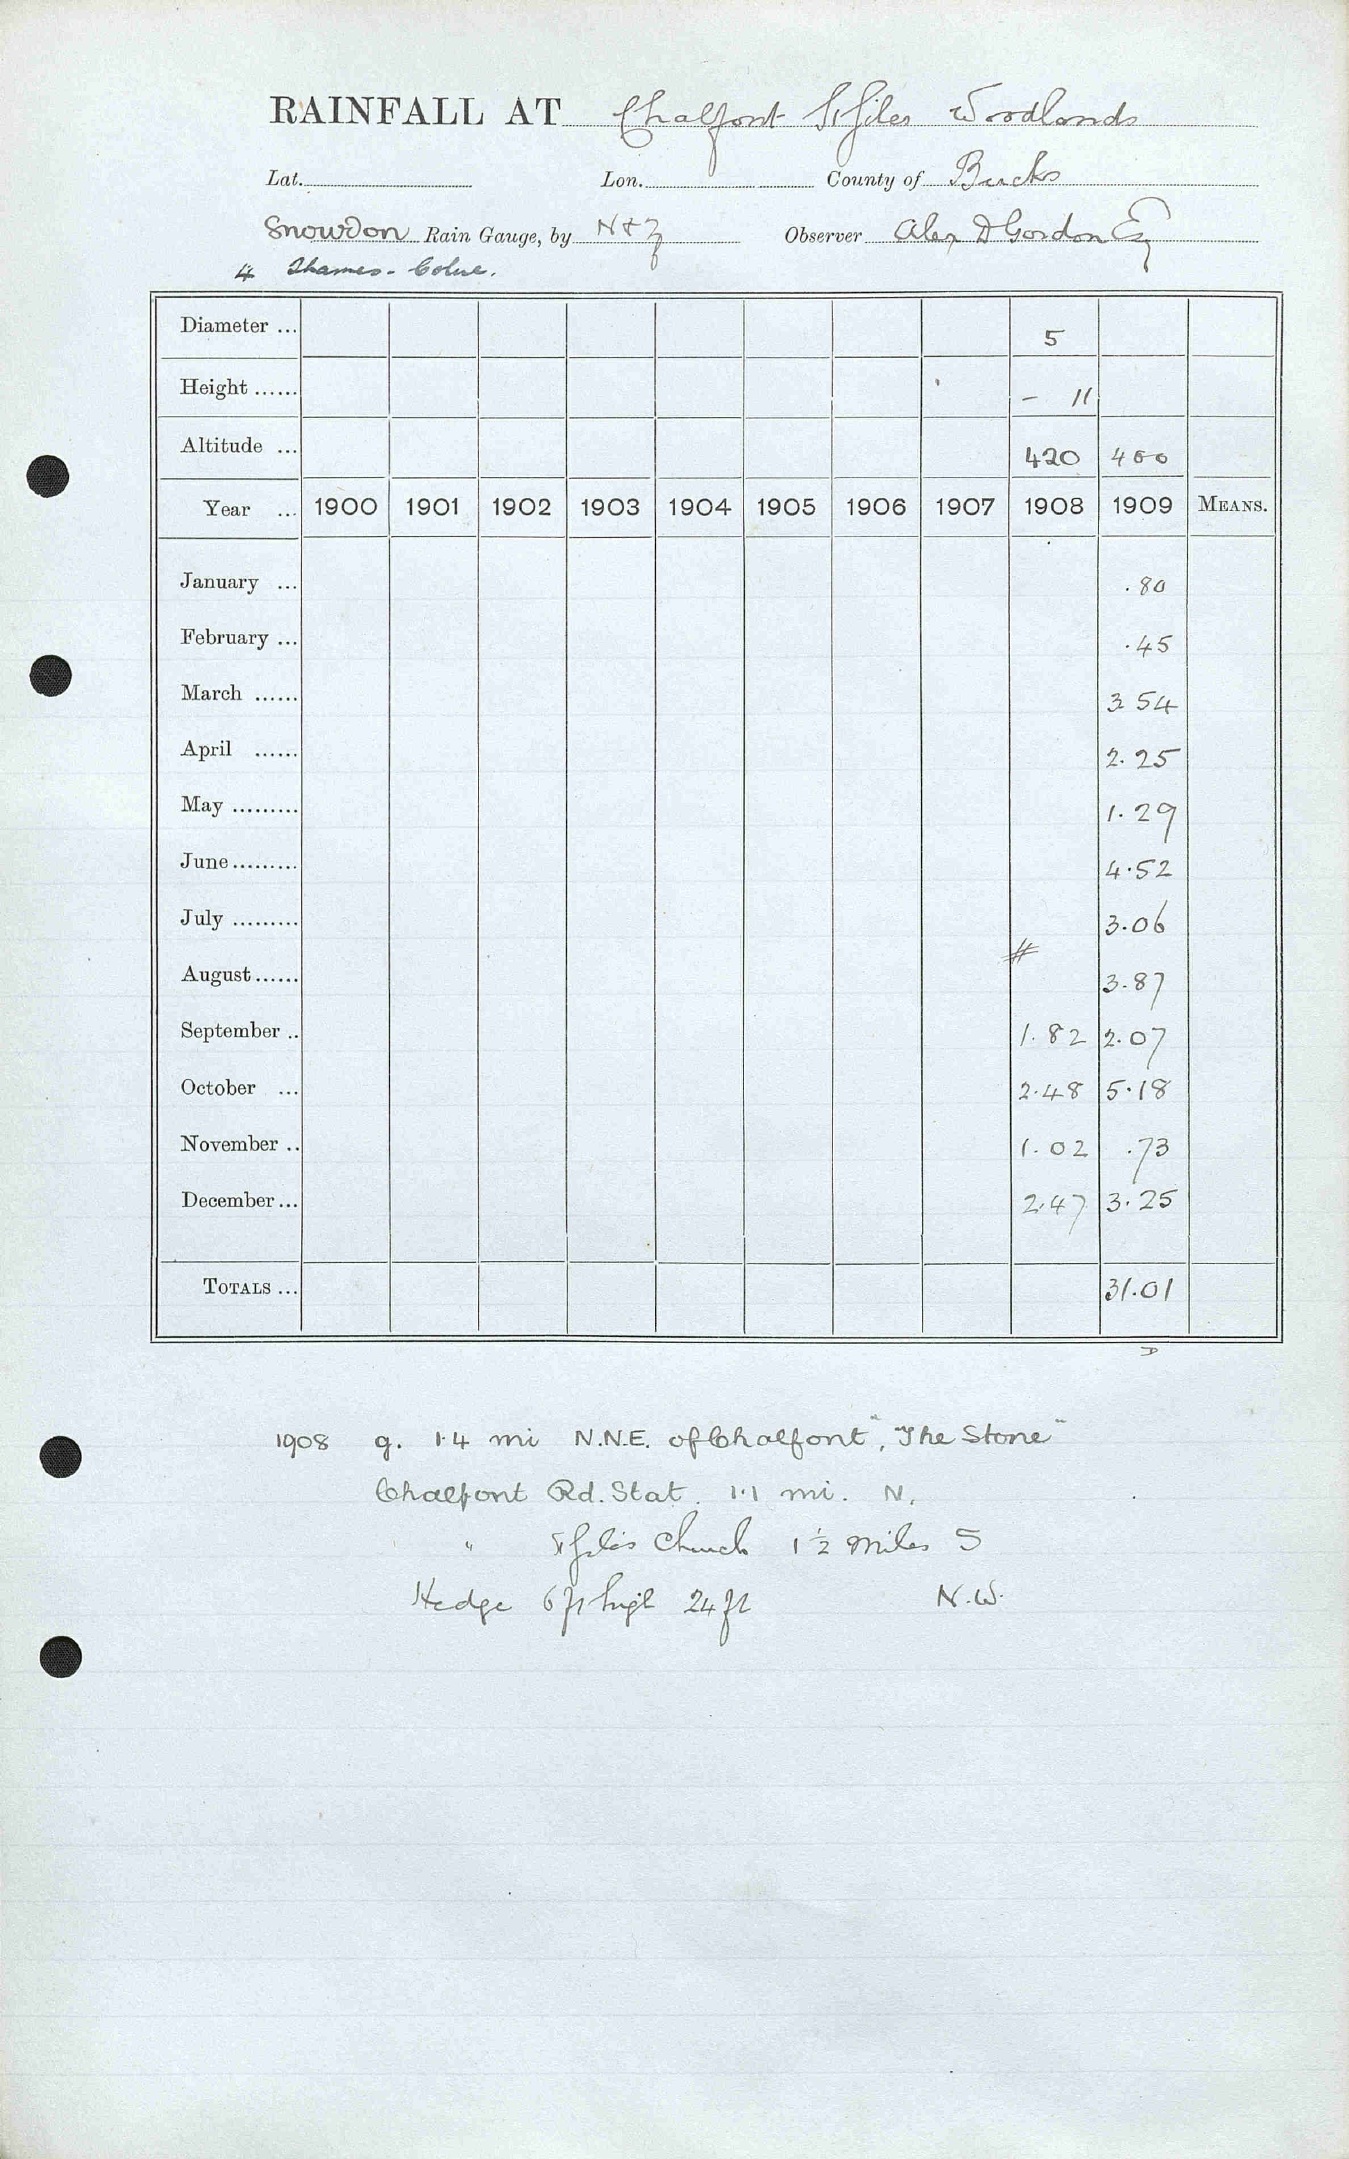 RAINFALL AT Chalfont St Giles Woodlands
Lat. Lon. County of Bucks
Snowdon Rain Gauge, by N & Z Observer Alex D Gordon Esq
4 Thames - Colne.
Diameter ... 5
Height ...... - 11
Altitude ... 420 400
Year ... 1900 1901 1902 1903 1904 1905 1906 1907 1908 1909 MEANS.
January ... .80
February ... .45
March ...... 3 54
April ...... 2.25
May ......... 1.29
June ......... 4.52
July ......... 3.06
#
August ...... 3.87
September .. 1.82 2.07
October ... 2.48 5.18
November .. 1.02 .73
December ... 2.47 3.25
TOTALS ... 31.01
1908 g. 1.4 mi N.N.E. of Chalfont, "The Stone"
Chalfont Rd. Stat. 1.1 mi. N.
" St Giles Church 1 1/2 miles S
Hedge 6 ft high 24 ft N.W.